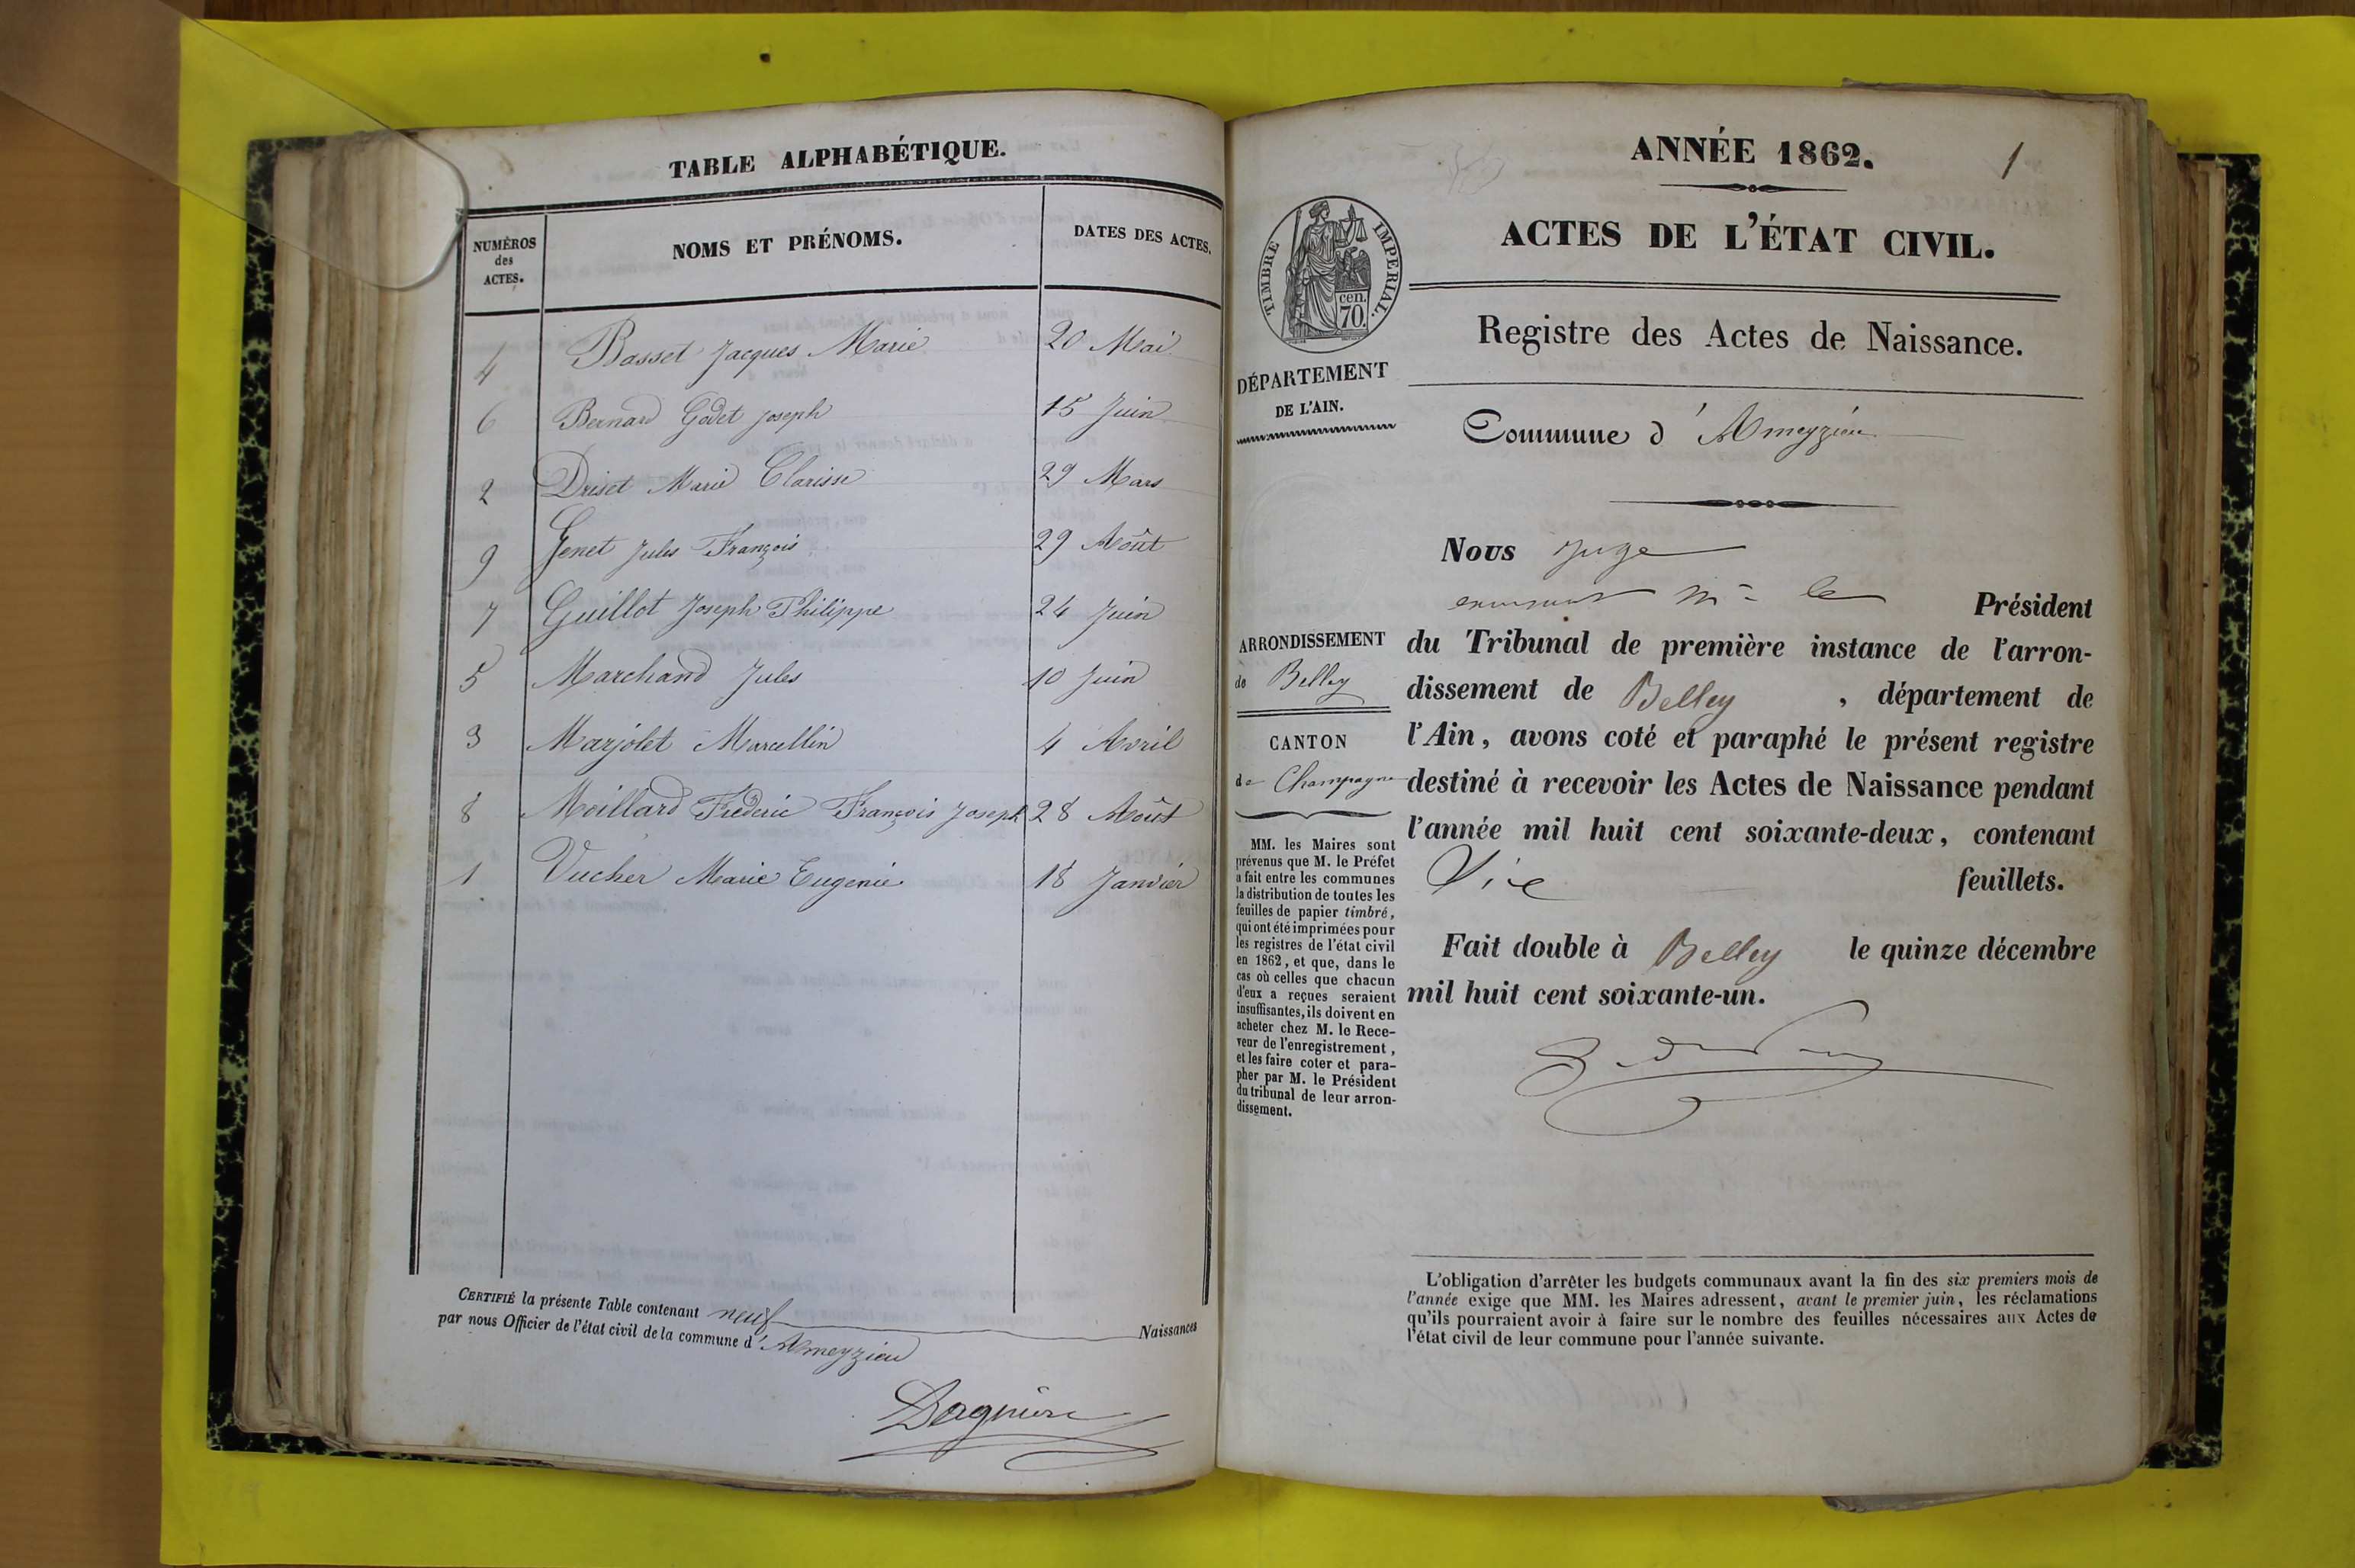 TABLE ALPHABÉTIQUE.
NUMÉROS des ACTES.
NOMS ET PRÉNOMS.
DATES DES ACTES.
4 Basset Jacques Marie 20 Mai
6 Bernard Godet Joseph 15 Juin
2 Driset Marie Clarisse 29 Mars
9 Genet Jules François 29 Août
7 Guillot Joseph Philippe 24 Juin
5 Marchand Jules 10 Juin
3 Marjolet Marcellin 4 Avril
8 Moillard Frédéric François Joseph 28 Août
1 Vucher Marie Eugenie 18 Janvier
CERTIFIÉ la présente Table contenant neuf Naissances
par nous Officier de l'état civil de la commune d'Ameyzieu
ANNÉE 1862.
1
ACTES DE L'ÉTAT CIVIL.
TIMBRE IMPERIAL.
cen.
70.
Registre des Actes de Naissance.
DÉPARTEMENT
DE L'AIN.
Commune d'Ameyzieu
ARRONDISSEMENT
de Belley
CANTON
de Champagne
MM. les Maires sont
prévenus que M. le Préfet
a fait entre les communes
la distribution de toutes les
feuilles de papier timbré,
qui ont été imprimées pour
les registres de l'état civil
en 1862, et que, dans le
cas où celles que chacun
d'eux a reçues seraient
insuffisantes, ils doivent en
acheter chez M. le Rece-
veur de l'enregistrement,
et les faire coter et para-
pher par M. le Président
du tribunal de leur arron-
dissement.
Nous Juge
le Président
du Tribunal de première instance de l'arron-
dissement de Belley, département de
l'Ain, avons coté et paraphé le présent registre
destiné à recevoir les Actes de Naissance pendant
l'année mil huit cent soixante-deux, contenant
feuillets.
Fait double à Belley le quinze décembre
mil huit cent soixante-un.
L'obligation d'arrêter les budgets communaux avant la fin des six premiers mois de
l'année exige que MM. les Maires adressent, avant le premier juin, les réclamations
qu'ils pourraient avoir à faire sur le nombre des feuilles nécessaires aux Actes de
l'état civil de leur commune pour l'année suivante.